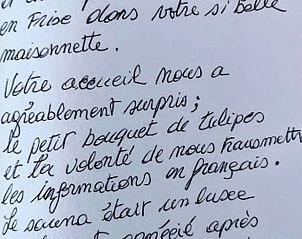 en Frise dans votre si belle
maisonnette.
Votre accueil nous a
agréablement surpris;
le petit bouquet de tulipes
et la volonté de nous transmettre
les informations en français.
Le sauna était un luxe
apprécié après